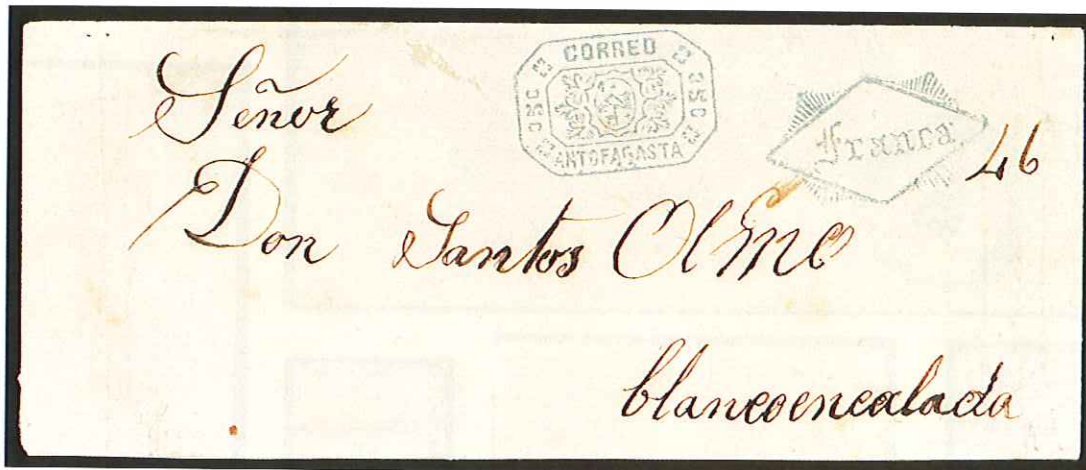 CORREO
ANTOFAGASTA
Franca
46
Señor
Don Santos Olmo
blancoencalada